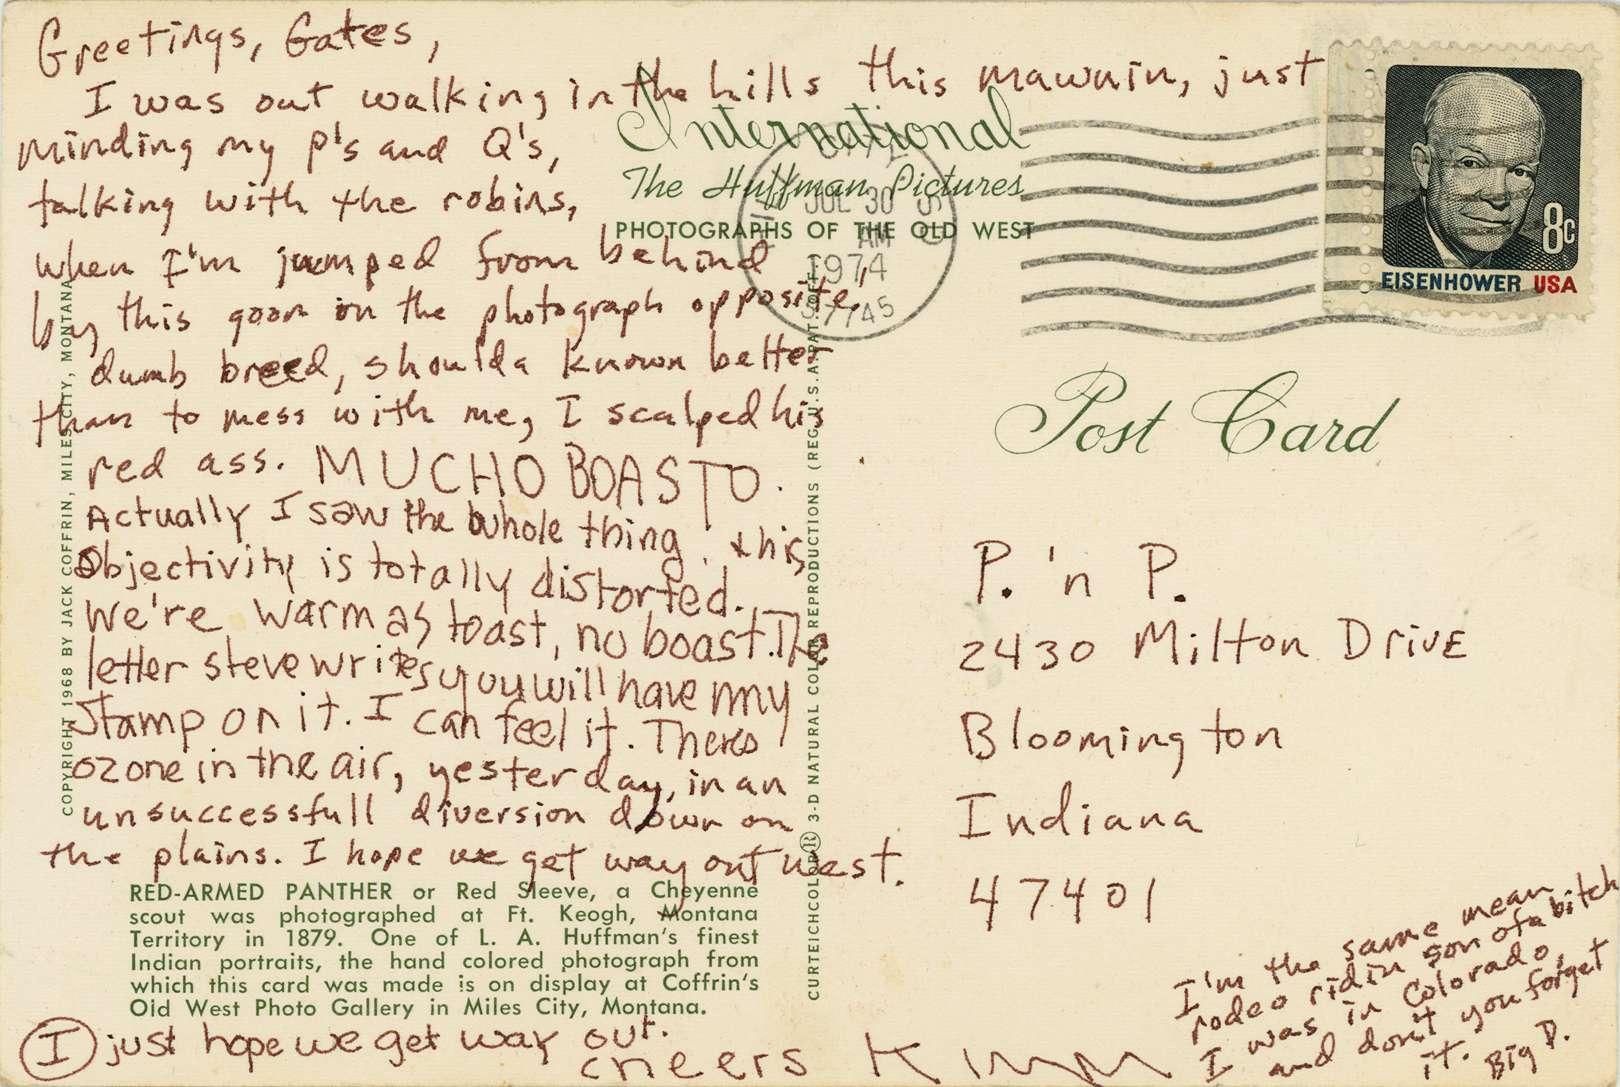 Greetings, Gates,
I was out walking in the hills this mawnin, just
minding my P's and Q's,
talking with the robins,
when I'm jumped from behind
by this goon on the photograph opposite,
dumb breed, shoulda known better
than to mess with me, I scalped his
red ass. MUCHO BOASTO.
Actually I saw the whole thing & his
objectivity is totally distorted.
We're warm as toast, no boast. The
letter steve writes you will have my
stamp on it. I can feel it. Theres
ozone in the air, yesterday, in an
unsuccessfull diversion down on
the plains. I hope we get way out west.
I just hope we get way out.
cheers Kimm
International
The Huffman Pictures
PHOTOGRAPHS OF THE OLD WEST
JUL 30
AM
1974
57745
8c
EISENHOWER USA
Post Card
P. 'n P.
2430 Milton Drive
Bloomington
Indiana
47401
I'm the same mean
rodeo ridin son of a bitch
I was in Colorado,
and don't you forget
it. Big D.
COPYRIGHT 1968 BY JACK COFFRIN, MILES CITY, MONTANA
CURTEICHCOLOR® 3-D NATURAL COLOR REPRODUCTIONS (REG. U.S.A. PAT. OFF.)
RED-ARMED PANTHER or Red Sleeve, a Cheyenne
scout was photographed at Ft. Keogh, Montana
Territory in 1879. One of L. A. Huffman's finest
Indian portraits, the hand colored photograph from
which this card was made is on display at Coffrin's
Old West Photo Gallery in Miles City, Montana.